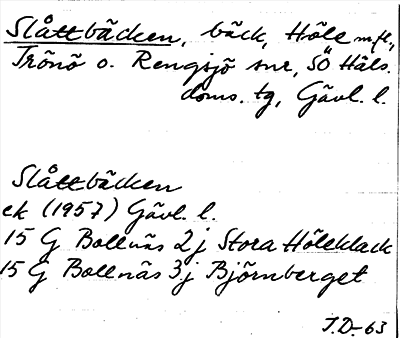 Slåttbäcken, bäck, Höle m.fl.,
Trönö o. Rengsjö snr, SÖ Häls.
doms. tg, Gävl. l.
Slåttbäcken
ek (1957) Gävl. l.
15 G Bollnäs 2j Stora Höleklack
15 G Bollnäs 3j Björnberget
J.D.-63